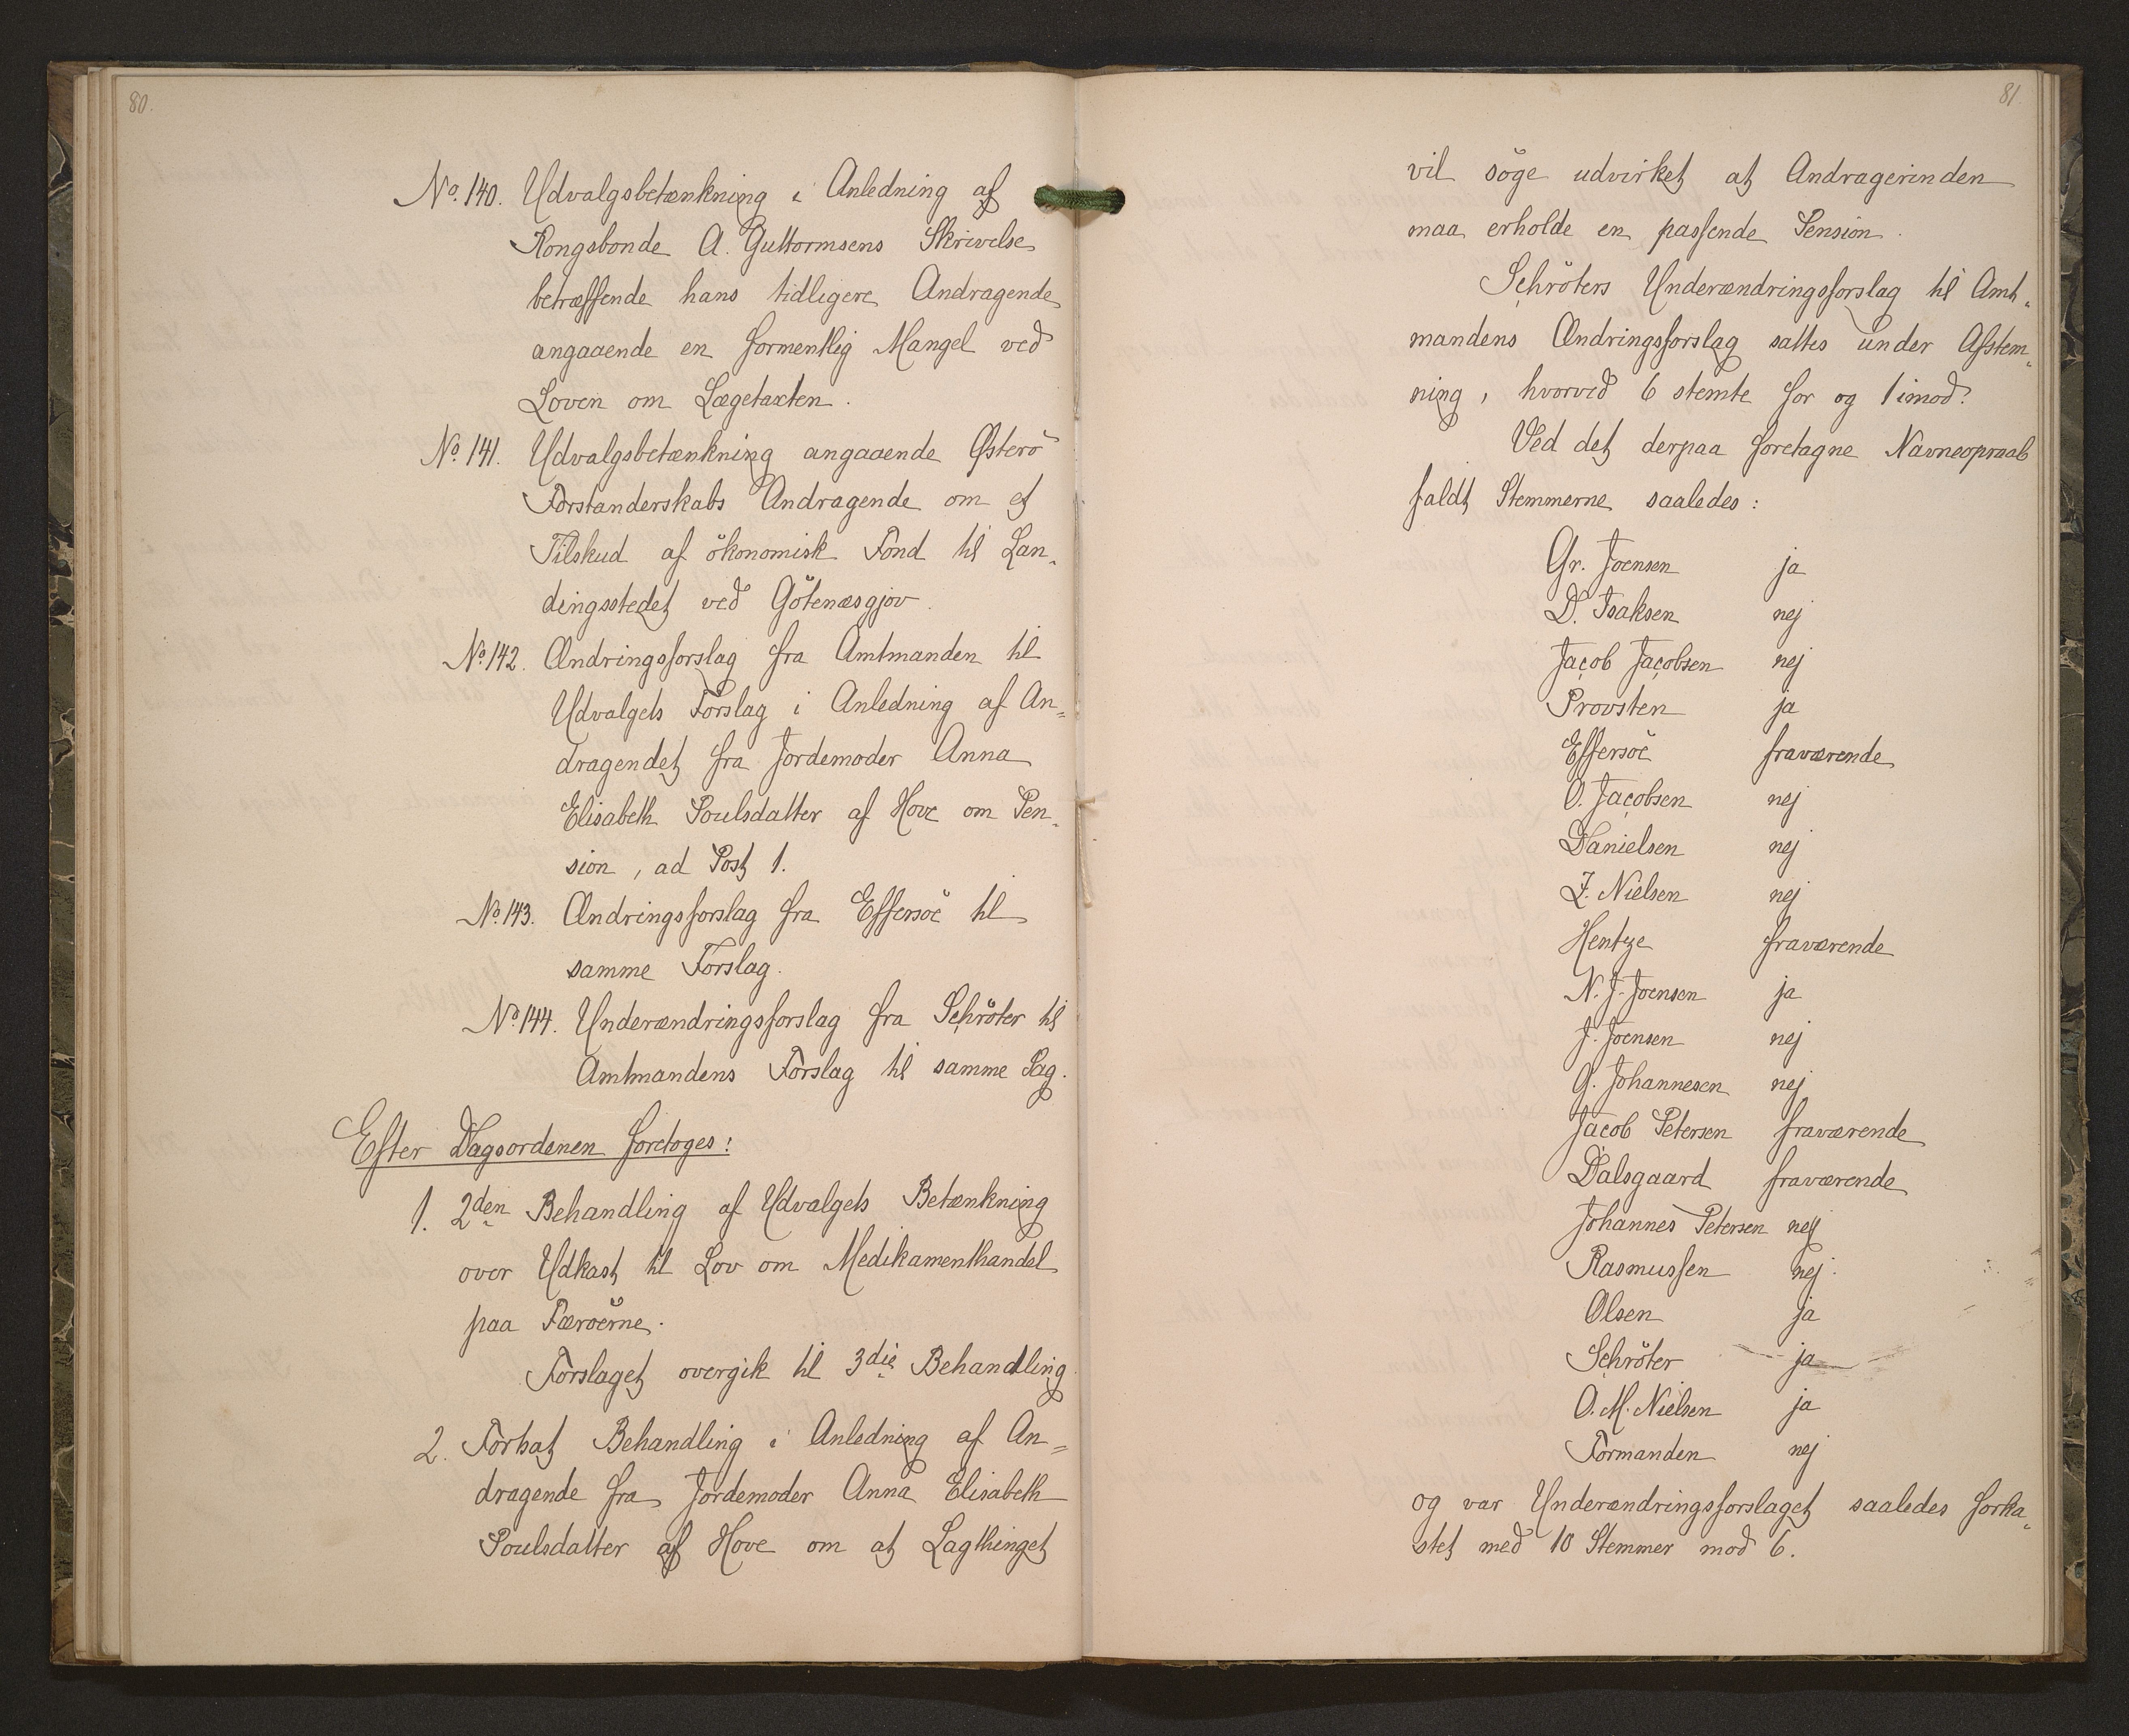 80.
No. 140. Udvalgsbetænkning i Anledning af
Kongsbonde A. Guttormsens Skrivelse
betræffende hans tidligere Andragende
angaaende en formentlig Mangel ved
Loven om Lægetaxten.
No. 141. Udvalgsbetænkning angaaende Østerö
Forstanderskabs Andragende om et
Tilskud af ökonomisk Fond til Lan-
dingsstedet ved Götenæsgjov.
No. 142. Ændringsforslag fra Amtmanden til
Udvalgets Forslag i Anledning af An=
dragendet fra Jordemoder Anna
Elisabeth Poulsdatter af Hove om Pen-
sion, ad Post 1.
No. 143. Ændringsforslag fra Effersöe til
samme Forslag.
No. 144. Underændringsforslag fra Schröter til
Amtmandens Forslag til samme Sag.
Efter Dagsordenen foretoges:
1. 2den Behandling af Udvalgets Betænkning
over Udkast til Lov om Medikamenthandel
paa Færöerne.
Forslaget overgik til 3die Behandling
2. Fortsat Behandling i Anledning af An=
dragende fra Jordemoder Anna Elisabeth
Poulsdatter af Hove om at Lagthinget
81
vil söge udvirket at Andragerinden
maa erholde en passende Pension.
Schröters Underændringsforslag til Amt-
mandens Ændringsforslag sattes under Afstem-
ning, hvorved 6 stemte for og 1 imod.
Ved det derpaa foretagne Navneopraab
faldt Stemmerne saaledes:
Gr. Joensen ja
D. Isaksen nej
Jacob Jacobsen nej
Provsten ja
Effersöe fraværende
O. Jacobsen nej
Danielsen nej
Z. Nielsen nej
Hentze fraværende
N. J. Joensen ja
J. Joensen nej
G. Johannesen nej
Jacob Petersen fraværende
Dalsgaard fraværende
Johannes Petersen nej
Rasmussen nej.
Olsen ja
Schröter ja
O. M. Nielsen ja
Formanden nej
og var Underændringsforslaget saaledes forka-
stet med 10 Stemmer mod 6.